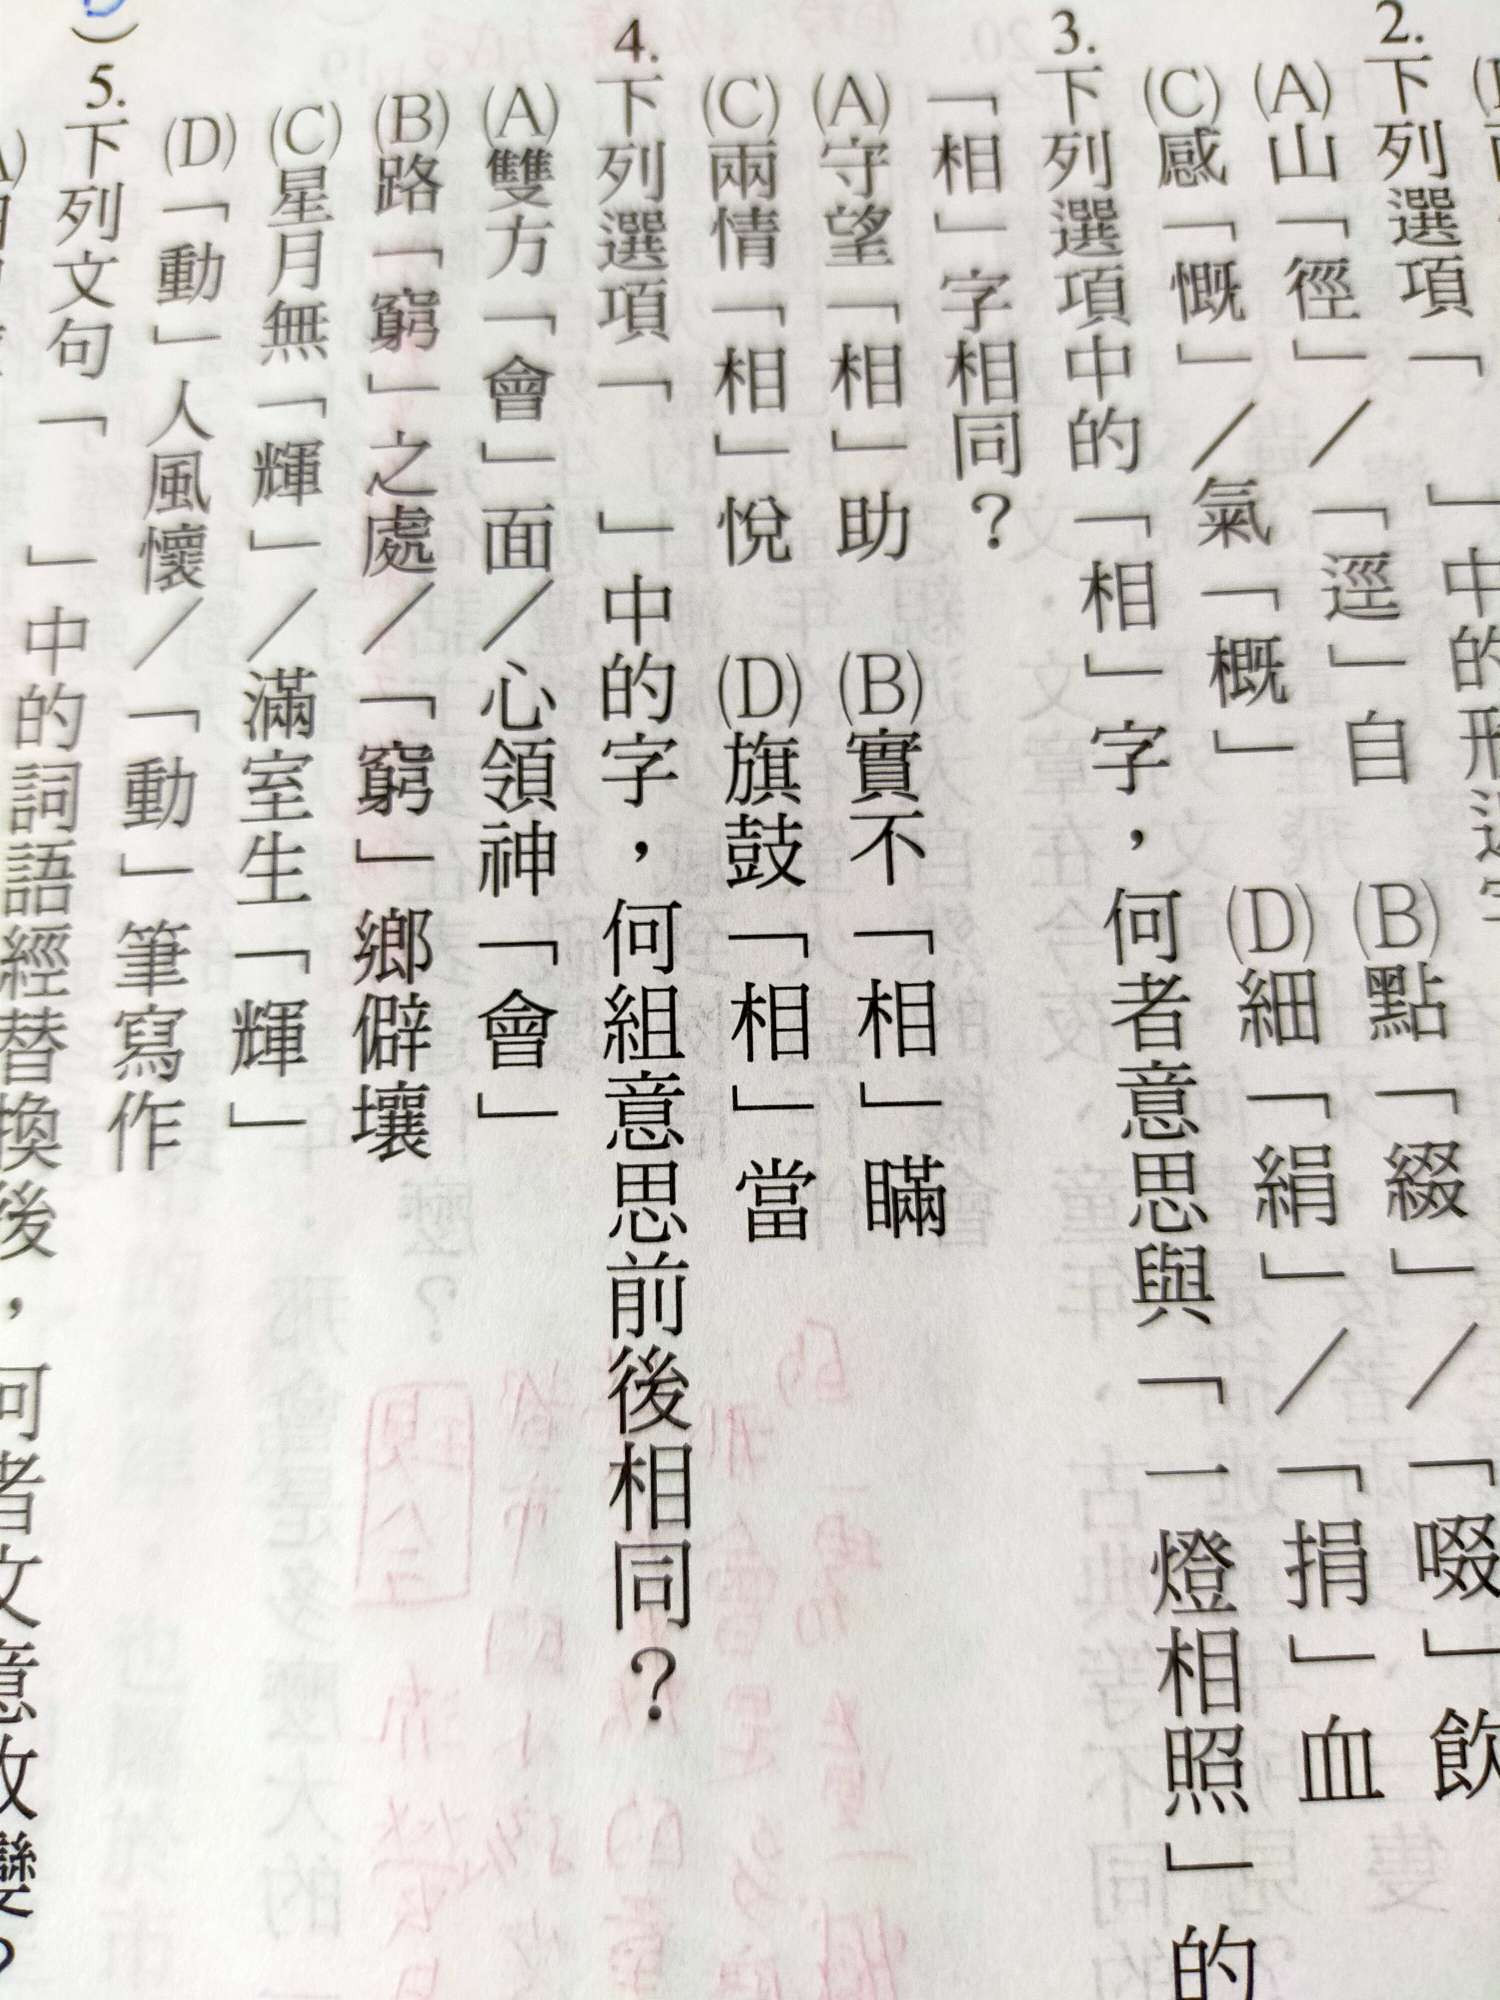 2.下列選項「　」中的形近字
(A)山「徑」／「逕」自　(B)點「綴」／「啜」飲
(C)感「慨」／氣「概」　(D)細「絹」／「捐」血
3.下列選項中的「相」字，何者意思與「一燈相照」的
「相」字相同？
(A)守望「相」助　(B)實不「相」瞞
(C)兩情「相」悅　(D)旗鼓「相」當
4.下列選項「　」中的字，何組意思前後相同？
(A)雙方「會」面／心領神「會」
(B)路「窮」之處／「窮」鄉僻壤
(C)星月無「輝」／滿室生「輝」
(D)「動」人風懷／「動」筆寫作
)5.下列文句「　」中的詞語經替換後，何者文意改變？